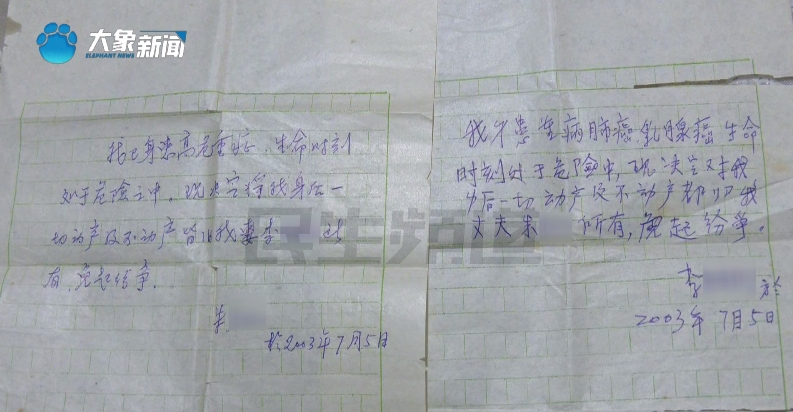 大象新闻
ELEPHANT NEWS
我已身患高危重症，生命时刻
处于危险之中，现决定将我身后一
切动产及不动产皆归我妻李 所
有，免起纷争.
朱
於2003年7月5日
我不患重病肺癌、乳腺癌生命
时刻处于危险中，现决定对我
身后一切动产及不动产都归我
丈夫朱 所有，免起纷争。
李 於
2003年7月5日
民生频道